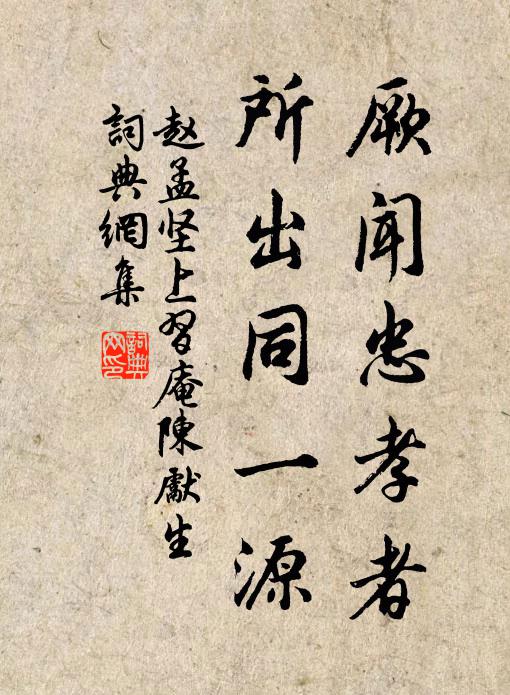 厥闻忠孝者
所出同一源
赵孟坚上习庵陳獻生
詞典網集
詞典網印